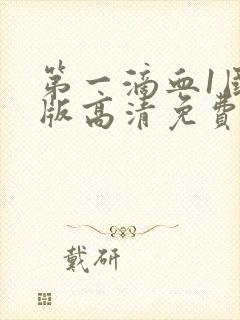 第一滴血1国
版高清免费
戴研